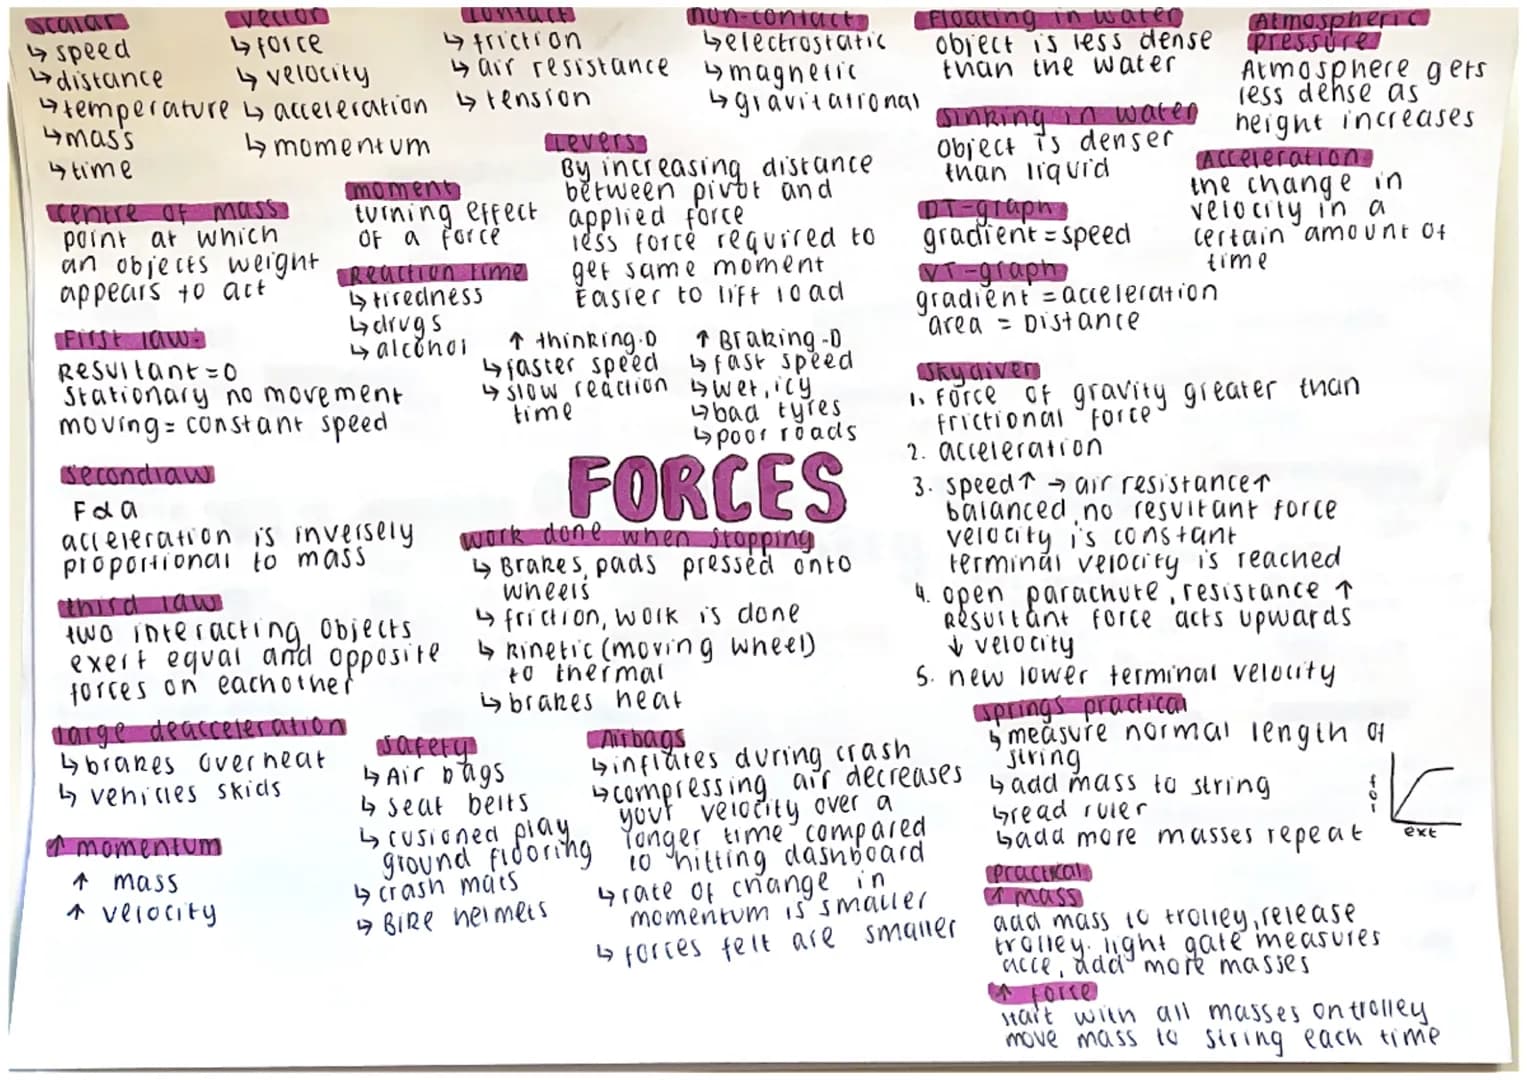 scalar
↳ speed
↳ distance
↳ temperature
↳ mass
↳ time
vector
↳ force
↳ velocity
↳ acceleration
↳ momentum
contact
↳ friction
↳ air resistance
↳ tension
non-contact
↳ electrostatic
↳ magnetic
↳ gravitational
Floating in water
object is less dense
than the water
sinking in water
object is denser
than liquid
Atmospheric
pressure
Atmosphere gets
less dense as
height increases
centre of mass
point at which
an objects weight
appears to act
moment
turning effect
of a force
Reaction time
↳ tiredness
↳ drugs
↳ alcohol
Levers
By increasing distance
between pivot and
applied force
less force required to
get same moment
Easier to lift load
DT-graph
gradient = speed
VT-graph
gradient = acceleration
area = Distance
Acceleration
the change in
velocity in a
certain amount of
time
First law:
Resultant = 0
Stationary no movement
moving = constant speed
↑ thinking.D
↳ faster speed
↳ slow reaction
time
↑ Braking-D
↳ fast speed
↳ wet, icy
↳ bad tyres
↳ poor roads
skydiver
1. Force of gravity greater than
frictional force
2. acceleration
3. speed↑ → air resistance↑
balanced, no resultant force
velocity is constant
terminal velocity is reached
4. open parachute, resistance ↑
Resultant force acts upwards
↓ velocity
5. new lower terminal velocity
second law
F α a
acceleration is inversely
proportional to mass
FORCES
work done when stopping
↳ Brakes, pads pressed onto
wheels
↳ friction, work is done
↳ kinetic (moving wheel)
to thermal
↳ brakes heat
third law
two interacting objects
exert equal and opposite
forces on eachother
large deacceleration
↳ brakes overheat
↳ vehicles skids
↑ momentum
↑ mass
↑ velocity
safety
↳ Air bags
↳ seat belts
↳ cusioned play
ground flooring
↳ crash mats
↳ Bike helmets
Airbags
↳ inflates during crash
↳ compressing air decreases
your velocity over a
longer time compared
to hitting dashboard
↳ rate of change in
momentum is smaller
↳ forces felt are smaller
springs practical
↳ measure normal length of
string
↳ add mass to string
↳ read ruler
↳ add more masses repeat
ext
Practical
↑ mass
add mass to trolley, release
trolley. light gate measures
acce, add more masses
↑ force
start with all masses on trolley
move mass to string each time